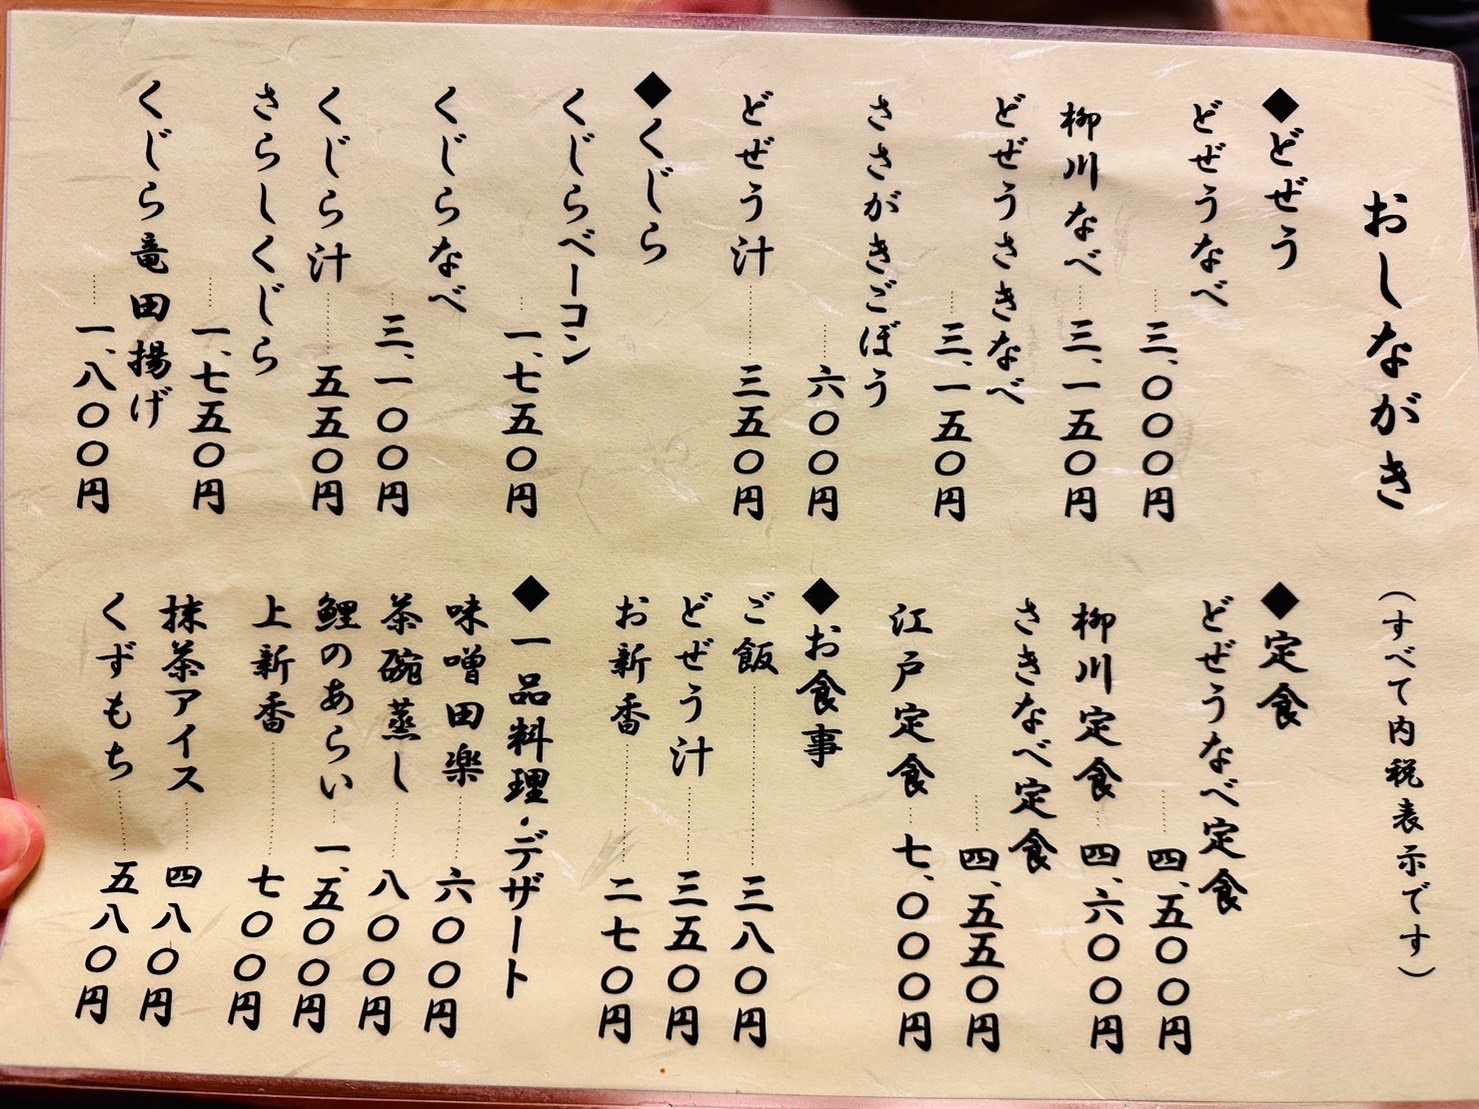 おしながき
(すべて内税表示です)
◆どぜう
どぜうなべ
三、〇〇〇円
柳川なべ 三、一五〇円
どぜうさきなべ
三、一五〇円
ささがきごぼう
六〇〇円
どぜう汁 三五〇円
◆くじら
くじらベーコン
一、七五〇円
くじらなべ
三、一〇〇円
くじら汁 五五〇円
さらしくじら
一、七五〇円
くじら竜田揚げ
一、八〇〇円
◆定食
どぜうなべ定食
四、五〇〇円
柳川定食 四、六〇〇円
さきなべ定食
四、五五〇円
江戸定食 七、〇〇〇円
◆お食事
ご飯 三八〇円
どぜう汁 三五〇円
お新香 二七〇円
◆一品料理・デザート
味噌田楽 六〇〇円
茶碗蒸し 八〇〇円
鯉のあらい 一、五〇〇円
上新香 七〇〇円
抹茶アイス 四八〇円
くずもち 五八〇円